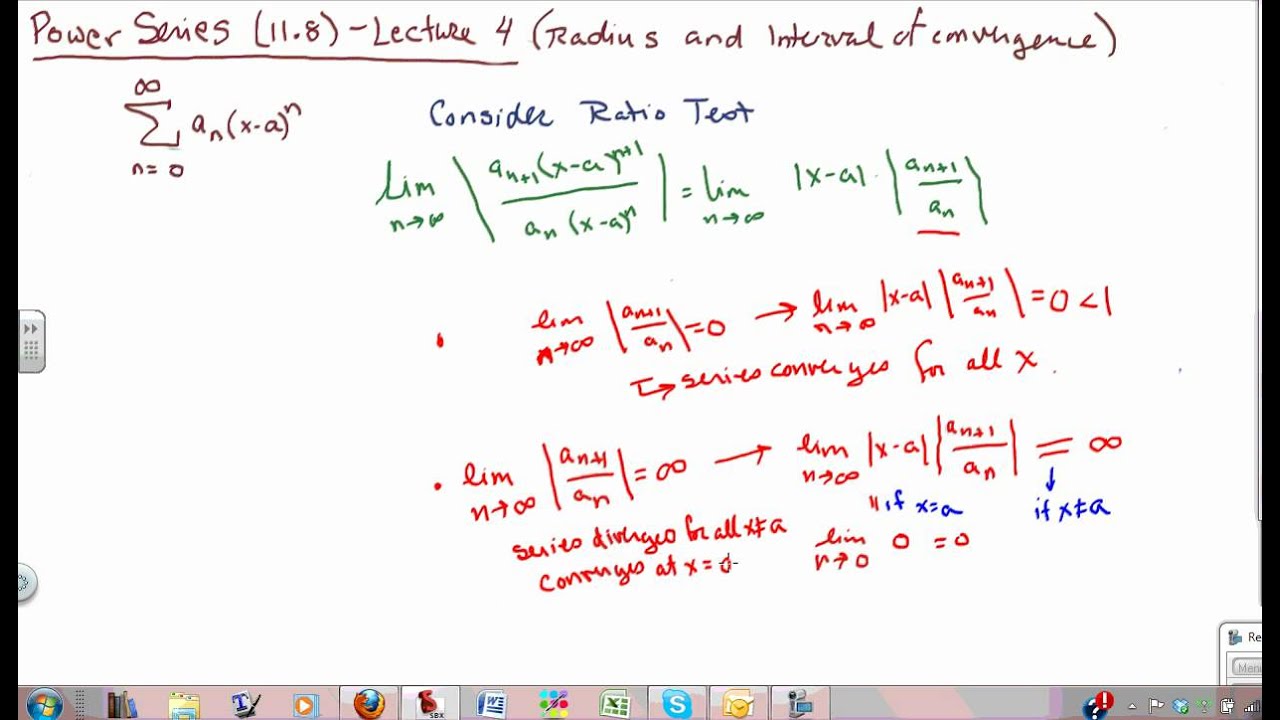 Power Series (11.8) - Lecture 4 (Radius and Interval of convergence)
∞
∑ aₙ(x-a)ⁿ
n=0
Consider Ratio Test
lim n→∞ | aₙ₊₁(x-a)ⁿ⁺¹ / aₙ(x-a)ⁿ | = lim n→∞ |x-a| · | aₙ₊₁ / aₙ |
• lim n→∞ | aₙ₊₁ / aₙ | = 0 → lim n→∞ |x-a| | aₙ₊₁ / aₙ | = 0 < 1
↳ series converges for all x.
• lim n→∞ | aₙ₊₁ / aₙ | = ∞ → lim n→∞ |x-a| | aₙ₊₁ / aₙ | = ∞
" if x=a ↓ if x≠a
series diverges for all x≠a
lim n→0 0 = 0
converges at x =
SBX
Re
Menu